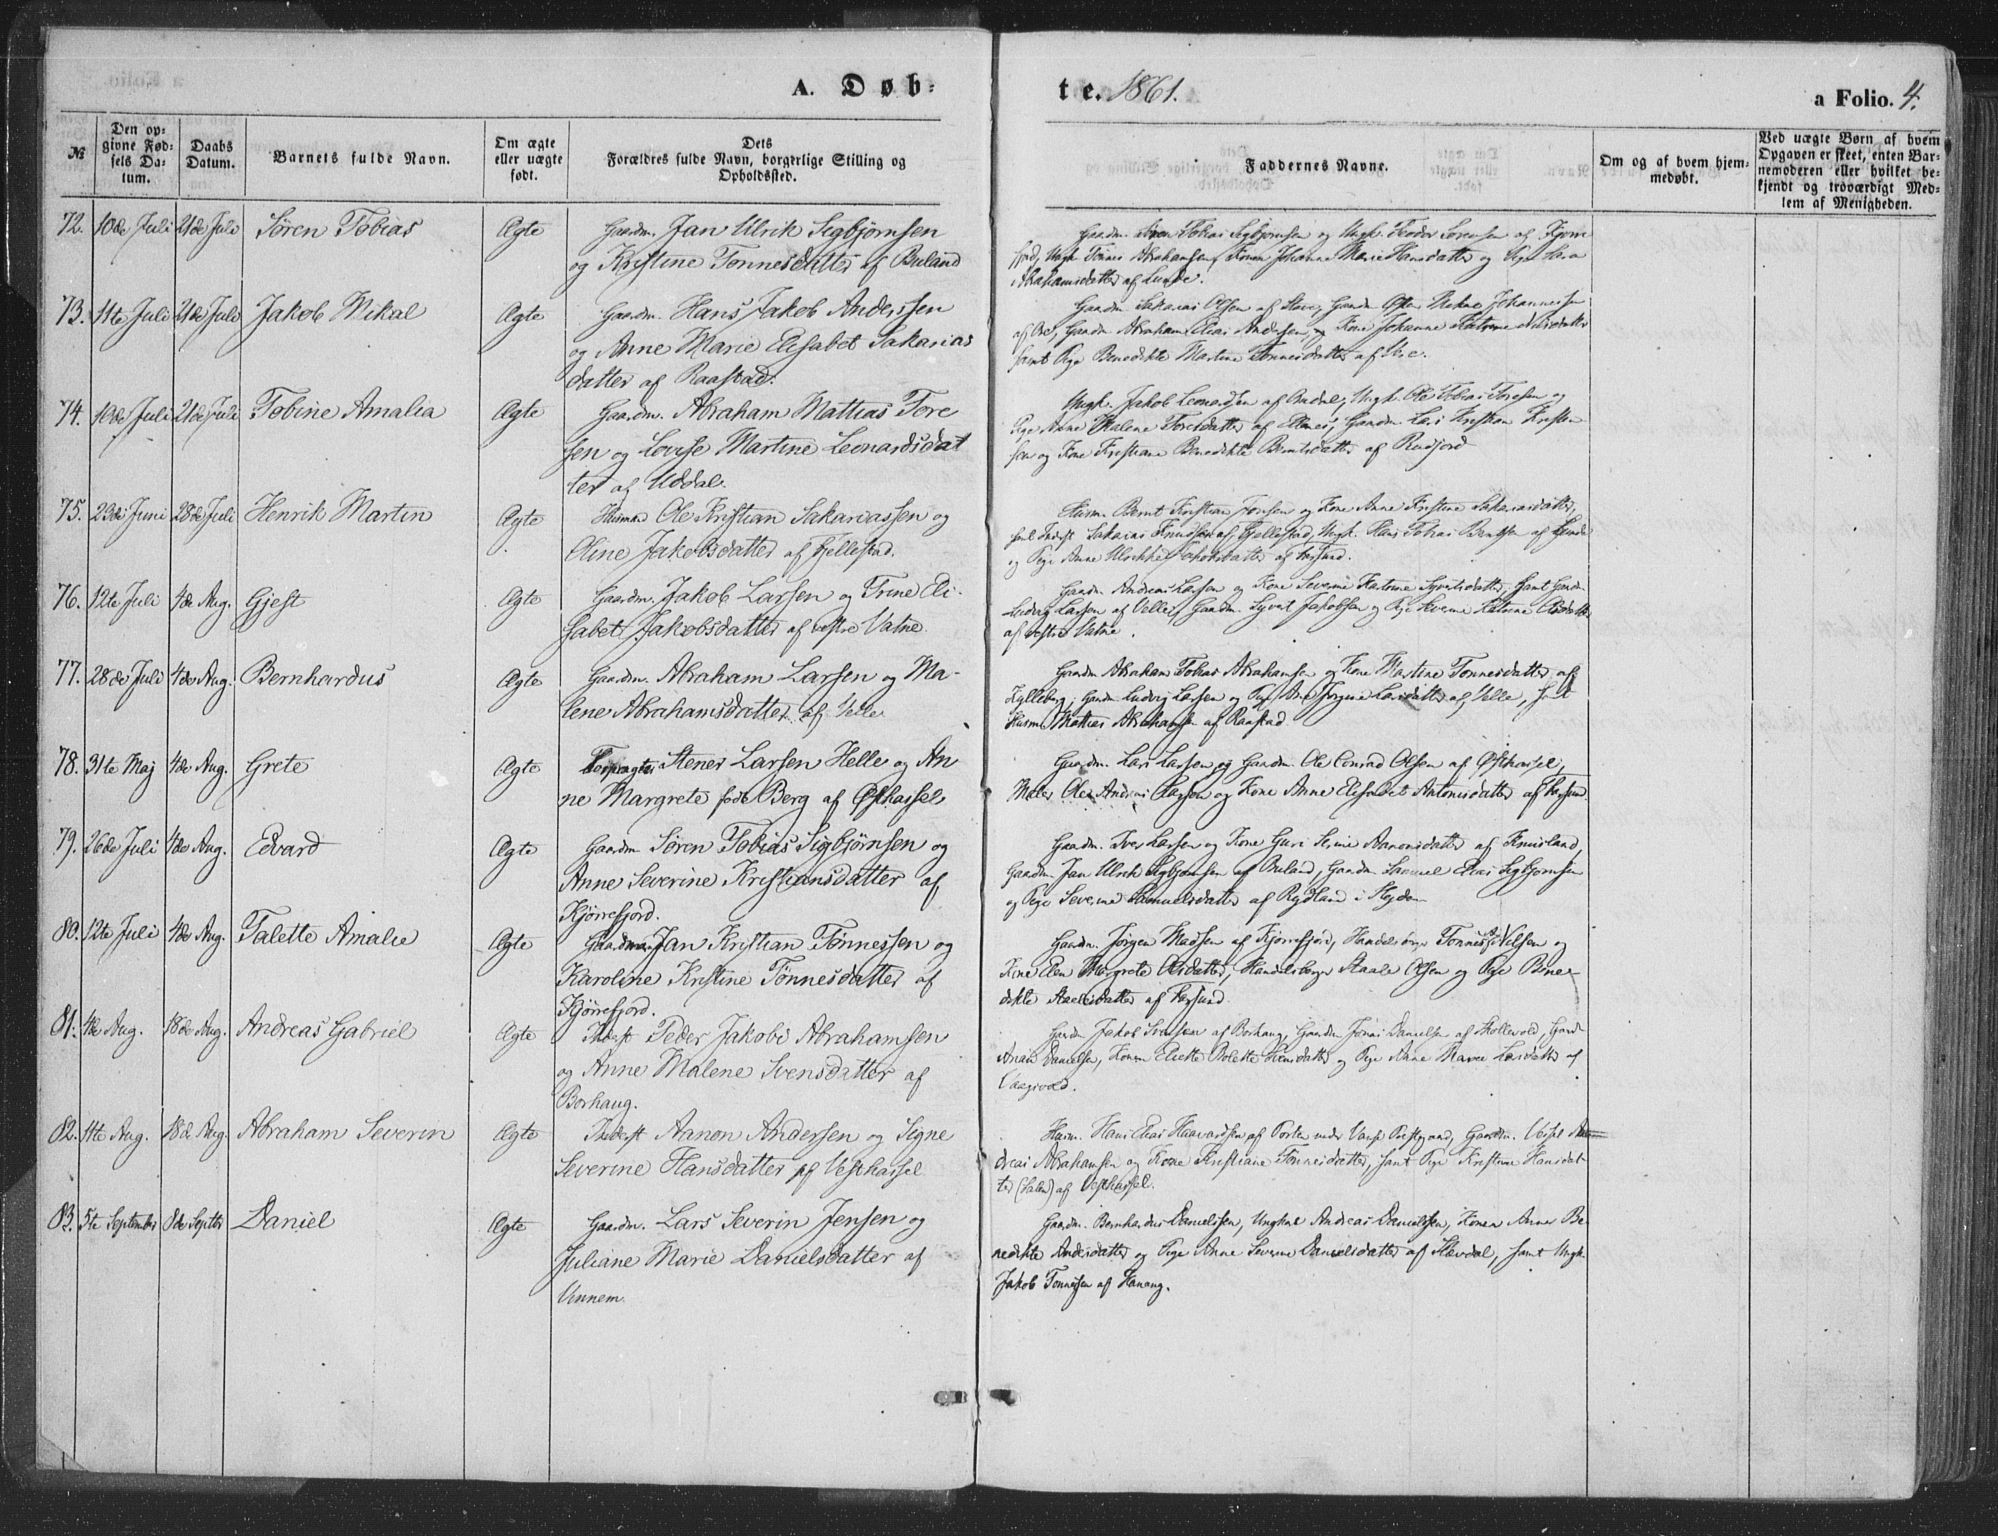 A. Døb-
te. 1861.
a Folio. 4.
№
Den op-
givne Fød-
sels Da-
tum.
Daabs
Datum.
Barnets fulde Navn.
Om ægte
eller uægte
født.
Dets
Forældres fulde Navn, borgerlige Stilling og
Opholdssted.
Faddernes Navne.
Om og af hvem hjem-
medøbt.
Ved uægte Børn af hvem
Opgaven er skeet, enten Bar-
nemoderen eller hvilket be-
kjendt og troværdigt Med-
lem af Menigheden.
72. 10de Juli 21de Juli Søren Tobias Ægte Gaardm. Jan Ulrik Sigbjørnsen
og Kristine Tønnesdatter af Buland
Gaardm. Søren Tobias Sigbjørnsen og Ungk. Teodor Sørensen af Kjørre
fjord, Ungk. Tønnes Abrahamsen, Konen Johanne Marie Hansdatter og Pige Sara
Abrahamsdatter af Lunde.
73. 11te Juli 21de Juli Jakob Mikal Ægte Gaardm. Hans Jakob Anderssen
og Anne Marie Elisabet Sakarias
datter af Raastad.
Gaardm Sakarias Olsen af Stave, Gaardm Johannessen
af Ore, Gaardm Abraham Elias Andersen og Kone Johanne Katrine
samt Pige Benedikte Martine Tønnesdatter af Ore.
74. 10de Juli 21de Juli Tobine Amalia Ægte Gaardm. Abraham Mattias Tore
sen og Lovise Martine Leonardsdat
ter af Uddal.
Ungk. Jakob Leonardsen af Uddal, Ungk. Ole Tobias Toresen og
Pige Anne Malene Toresdatter af Elnes, Gaardm Lars Kristian Kristen
sen og Kone Kristiane Benedikte Berntsdatter af Rudjord
75. 23de Juni 28de Juli Henrik Martin Ægte Husman Ole Kristian Sakariassen og
Oline Jakobsdatter af Fjellestad.
Husm. Bernt Kristian Jonsen og Kone Anne Kristine Sakariasdatter,
Inderst Sakarias Knudsen af Fjellestad, Ungk. Hans Tobias Berntsen af Lunde
og Pige Anne Ulrikke Jakobsdatter af Farsund.
76. 12te Juli 4de Aug. Gjest Ægte Gaardm. Jakob Larsen og Trine Eli-
sabet Jakobsdatter af vestre Vatne.
Gaardm. Andreas Larsen og Kone Severine Katrine Syvertsdatter, samt Gaardm
Ludvig Larsen af Velle, Gaardm. Syvert Jakobsen og Pige Severine Katrine
af vestre Vatne.
77. 28de Juli 4de Aug. Bernhardus Ægte Gaardm. Abraham Larsen og Ma-
lene Abrahamsdatter af Velle
Gaardm Abraham Tobias Abrahamsen og Kone Martine Tønnesdatter af
Kylleberg, Gaardm Ludvig Larsen og Pige Ane Jørgine Larsdatter af Velle, samt
Husm. Mattias Abrahamsen af Raastad
78. 31te Maj 4de Aug. Grete Ægte Forpagter Stener Larsen Helle og An
ne Margrete født Berg af Østhassel
Gaardm. Lars Larsen og Gaardm. Ole Conrad Olsen af Østhassel,
Maler Ole Andreas Larsen og Kone Anne Elisabet Antonisdatter af Farsund
79. 26de Juli 4de Aug. Edvard Ægte Gaardm Søren Tobias Sigbjørnsen og
Anne Severine Kristiansdatter af
Kjørrefjord.
Gaardm. Iver Larsen og Kone Guri Serine Aanonsdatter af Knivsland,
Gaardm Jan Ulrik Sigbjørnsen af Buland, Gaardm Samuel Elias Sigbjørnsen
og Pige Severine Samuelsdatter af Rydland i
80. 12te Juli 4de Aug. Talette Amalie Ægte Gaardman Jan Kristian Tønnessen og
Karoline Kristine Tønnesdatter af
Kjørrefjord.
Gaardm. Jørgen Madsen af Kjørrefjord, Handelsborger Tønnes Nilsen og
Kone Elen Margrete Olsdatter, Handelsborger Staale Olsen og Pige Bene-
dikte Staalesdatter af Farsund.
81. 4de Aug. 18de Aug. Andreas Gabriel Ægte Inderst Peder Jakobi Abrahamsen
og Anne Malene Svensdatter af
Borhaug.
Gaardm Jakob Svensen af Borhaug, Gaardm Jonas Danielsen af Skollevold, Gaard
Danielsen, Konen Eliette Bolette Svensdatter og Pige Anne Maria Larsdatter af
Vaagsvold.
82. 11te Aug. 18de Aug. Abraham Severin Ægte Inderst Aanon Andersen og Signe
Severine Hansdatter af Vesthassel
Husm. Hans Elias Haavardsen af Porten under Vanse Prestegaard, Gaardm. An
dreas Abrahamsen og Kone Kristiane Tønnesdatter, samt Pige Kristine Hansdat
ter af Vesthassel.
83. 5te September 8de Septbr Daniel Ægte Gaardm. Lars Severin Jensen og
Juliane Marie Danielsdatter af
Vinnem.
Gaardm. Bernhardus Danielssen, Ungkarl Andreas Danielssen, Konen Anne Be-
nedikte Andersdatter og Pige Anne Severine Danielsdatter af Skeidal, samt Ungk.
Jakob Tønnessen af Hanang.